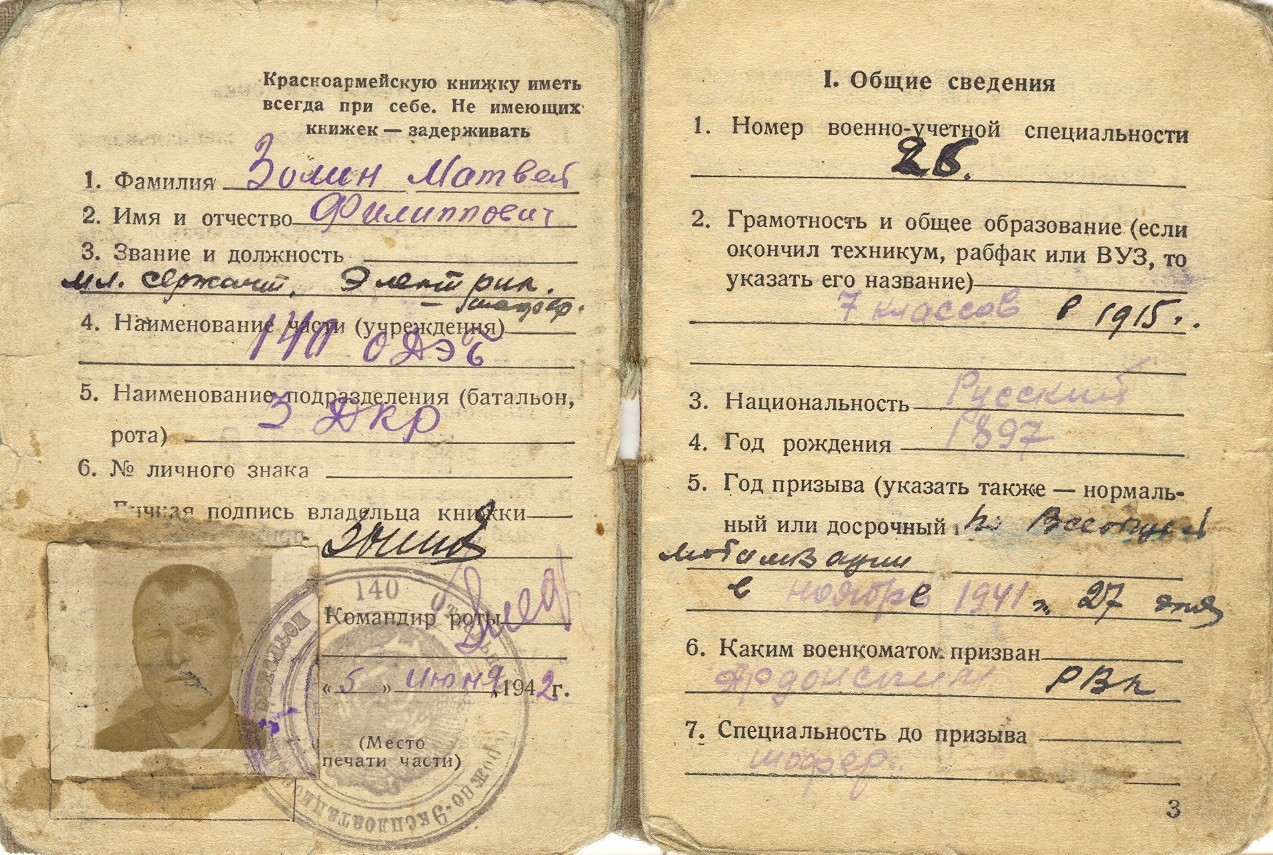 Красноармейскую книжку иметь
всегда при себе. Не имеющих
книжек — задерживать
1. Фамилия Золин Матвей
2. Имя и отчество Филиппович
3. Звание и должность
мл. сержант, Электрик.
шофер.
4. Наименование части (учреждения)
140 ОДЭБ
5. Наименование подразделения (батальон,
3 ДКР
рота)
6. № личного знака
Личная подпись владельца книжки
Командир роты
„5" июня 1942г.
(Место
печати части)
140
I. Общие сведения
1. Номер военно-учетной специальности
26.
2. Грамотность и общее образование (если
окончил техникум, рабфак или ВУЗ, то
указать его название)
7 классов в 1915 г.
3. Национальность Русский
4. Год рождения 1897
5. Год призыва (указать также — нормаль-
ный или досрочный по Всеобщей
мобилизации
в ноябре 1941 г. 27 дня
6. Каким военкоматом призван
Ардонским РВК
7. Специальность до призыва
шофер.
3